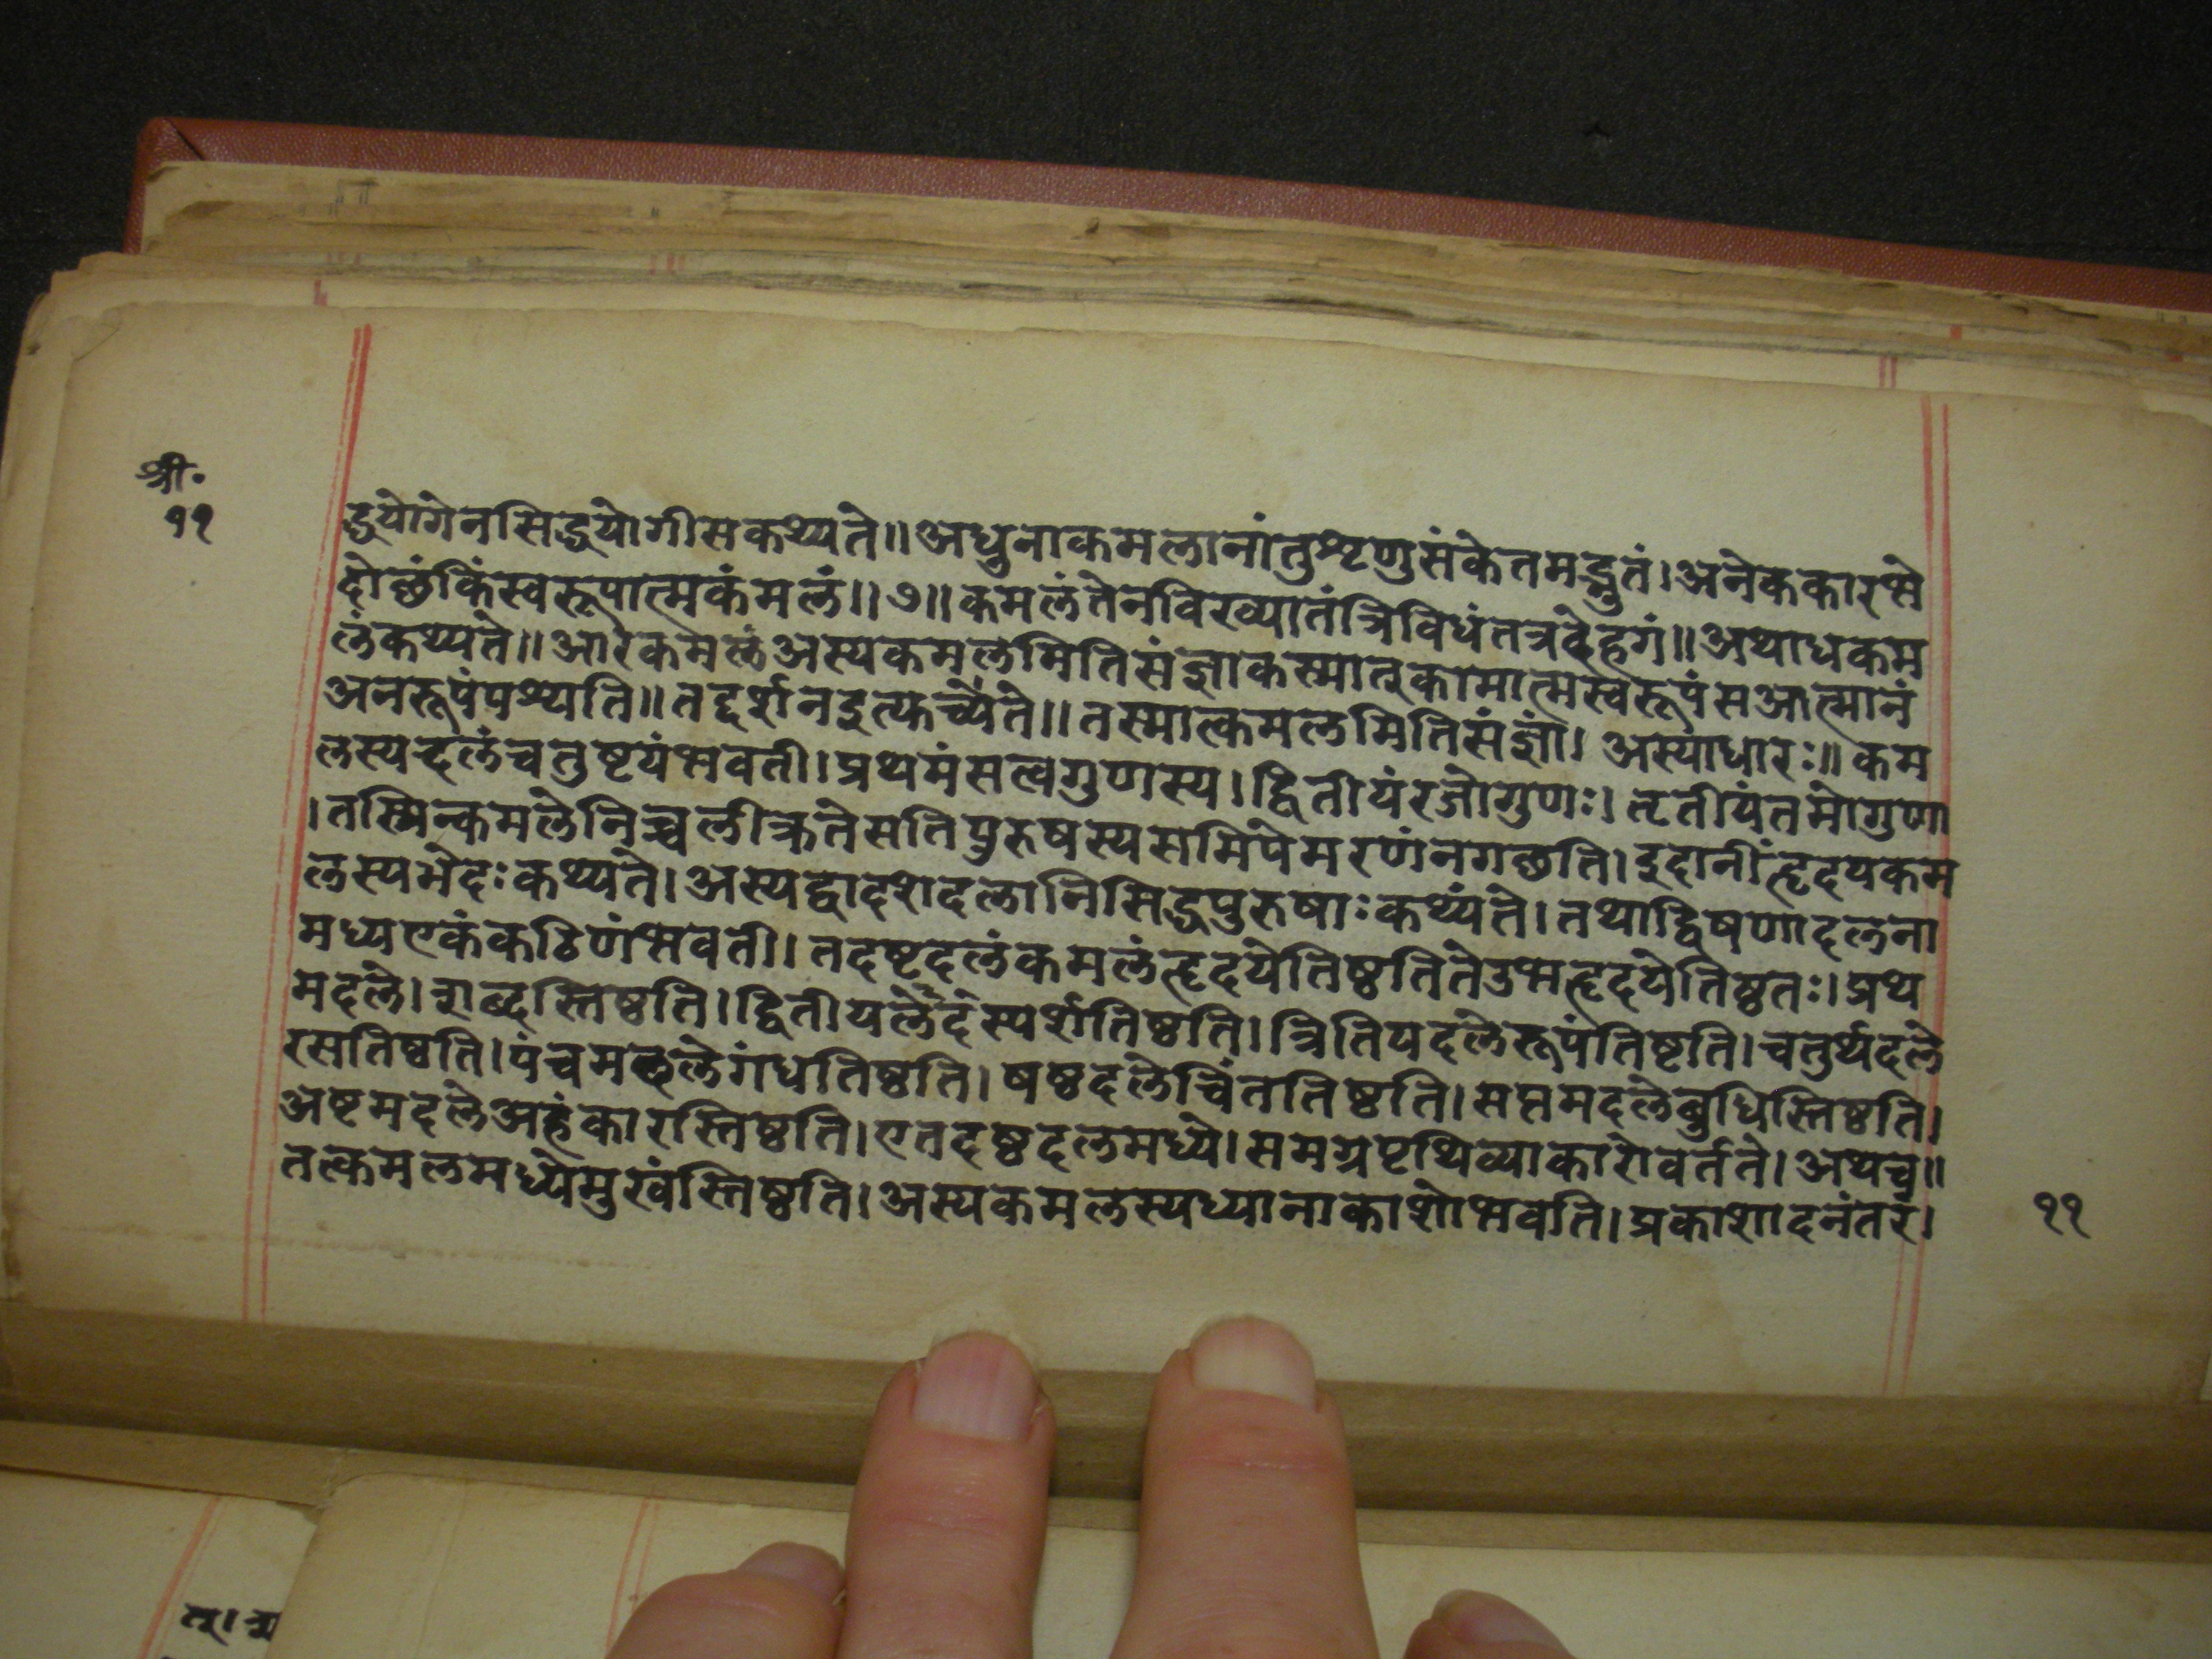 श्री॰
११
द्धयोगेनसिद्धयोगीसकथ्यते॥अधुनाकमलानांतुशृणुसंकेतमद्भुतं।अनेककारभे
दोछंकिंस्वरूपात्मकंमलं॥७॥कमलंतेनविख्यातंत्रिविधंतत्रदेहगं॥अथाधकम
लंकथ्यते॥आरकमलंअस्यकमलमितिसंज्ञाकस्मात्‌कामात्मस्वरूपंसआत्मानं
अनरूपंपश्यति॥तद्दर्शनइत्फर्च्यते॥तस्मात्कमलमितिसंज्ञां।अस्याधारः॥कम
लस्यद्दलंचतुष्टयंभवती।प्रथमंसत्वगुणस्य।द्वितीयंरजोगुणः।तृतीयंतमोगुण।
।तस्मिन्कमलेनिच्चलीक्रतेसतिपुरुषस्यसमिपेमरणंनगछति।इदानींत्हृदयकम
लस्यभेदःकथ्यते।अस्यद्वादशदलानिसिद्धपुरुषाःकथ्यंते।तथाद्विषणादलना
मध्यएकंकठिणंभवती।तदष्टदलंकमलंत्हृदयेतिष्ठतितेउभत्हृदयेतिष्ठतः।प्रथ
मदले।शब्दस्तिष्ठति।द्वितीयलेदेस्पर्शतिष्ठति।त्रितियदलेरूपंतिष्टति।चतुर्थदले
रसतिष्ठति।पंचमलेगंधतिष्ठति।षष्ठदलेचिंततिष्ठति।सप्तमदलेबुधिस्तिष्ठति।
अष्टमदलेअहंकारस्तिष्ठति।एतदष्ठदलमध्ये।समग्रपृथिव्याकारोवर्तते।अथच॥
तत्कमलमध्येमुखंस्तिष्ठति।अस्यकमलस्यध्यानाकाशोभवति।प्रकाशादनंतरं।
११
त्।